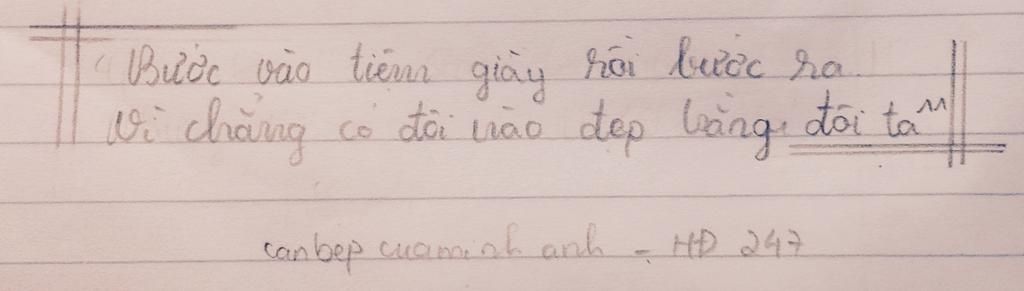 Bước vào tiệm giày rồi bước ra
Vì chẳng có đôi nào đẹp bằng đôi ta"
canbepcuaminhanh - HĐ 247